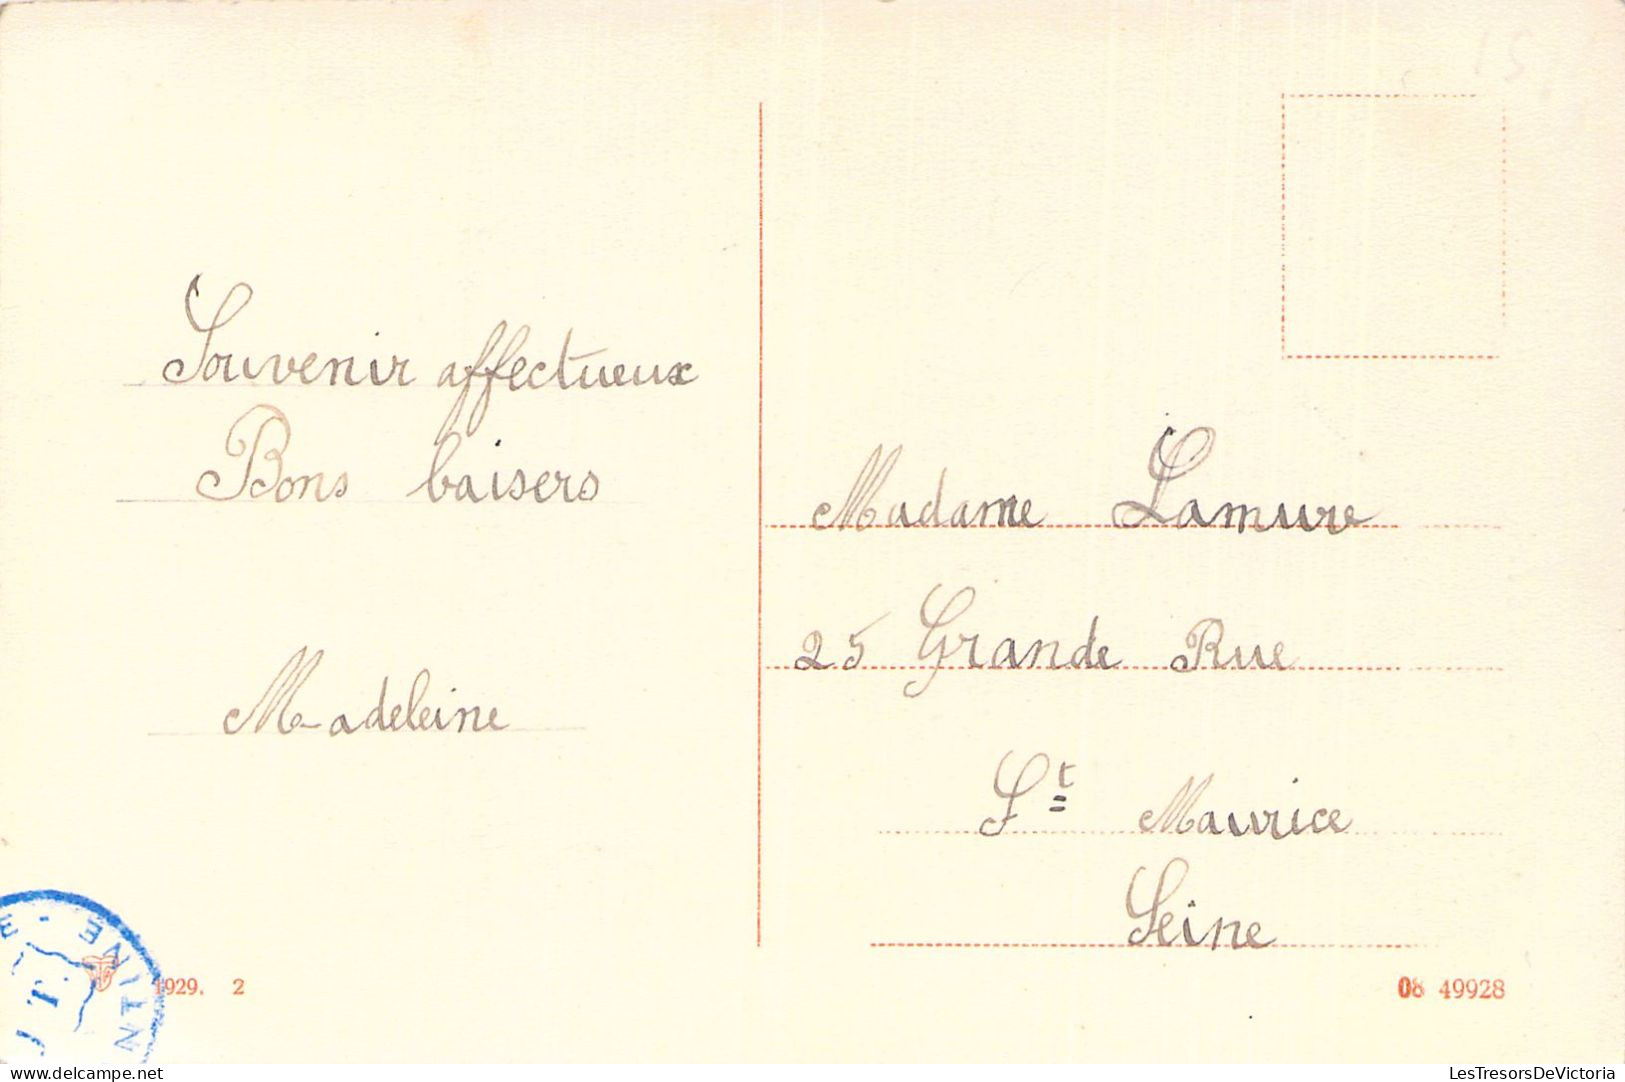 Souvenir affectueux
Bons baisers
Madeleine
Madame Lamure
25 Grande Rue
St Maurice
Seine
1929. 2
08 49928
LesTresorsDeVictoria
www.delcampe.net